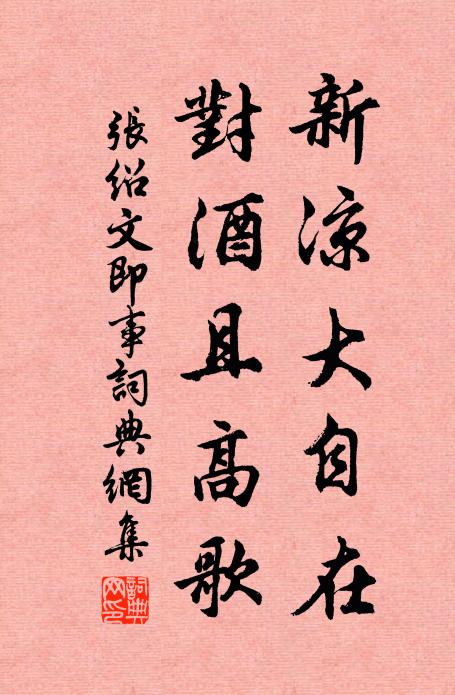 新涼大自在
對酒且高歌
張紹文即事詞典網集
詞典网印